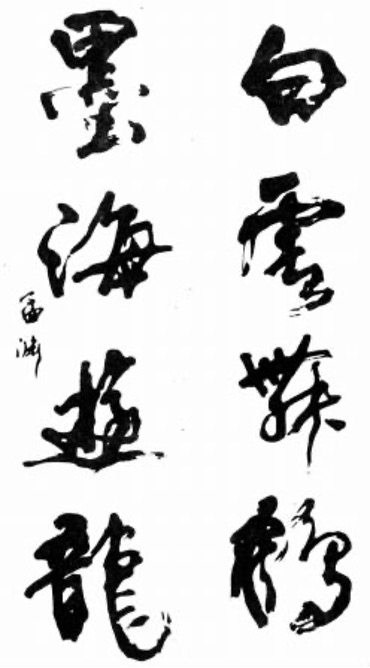 白雲舞鶴
墨海遊龍